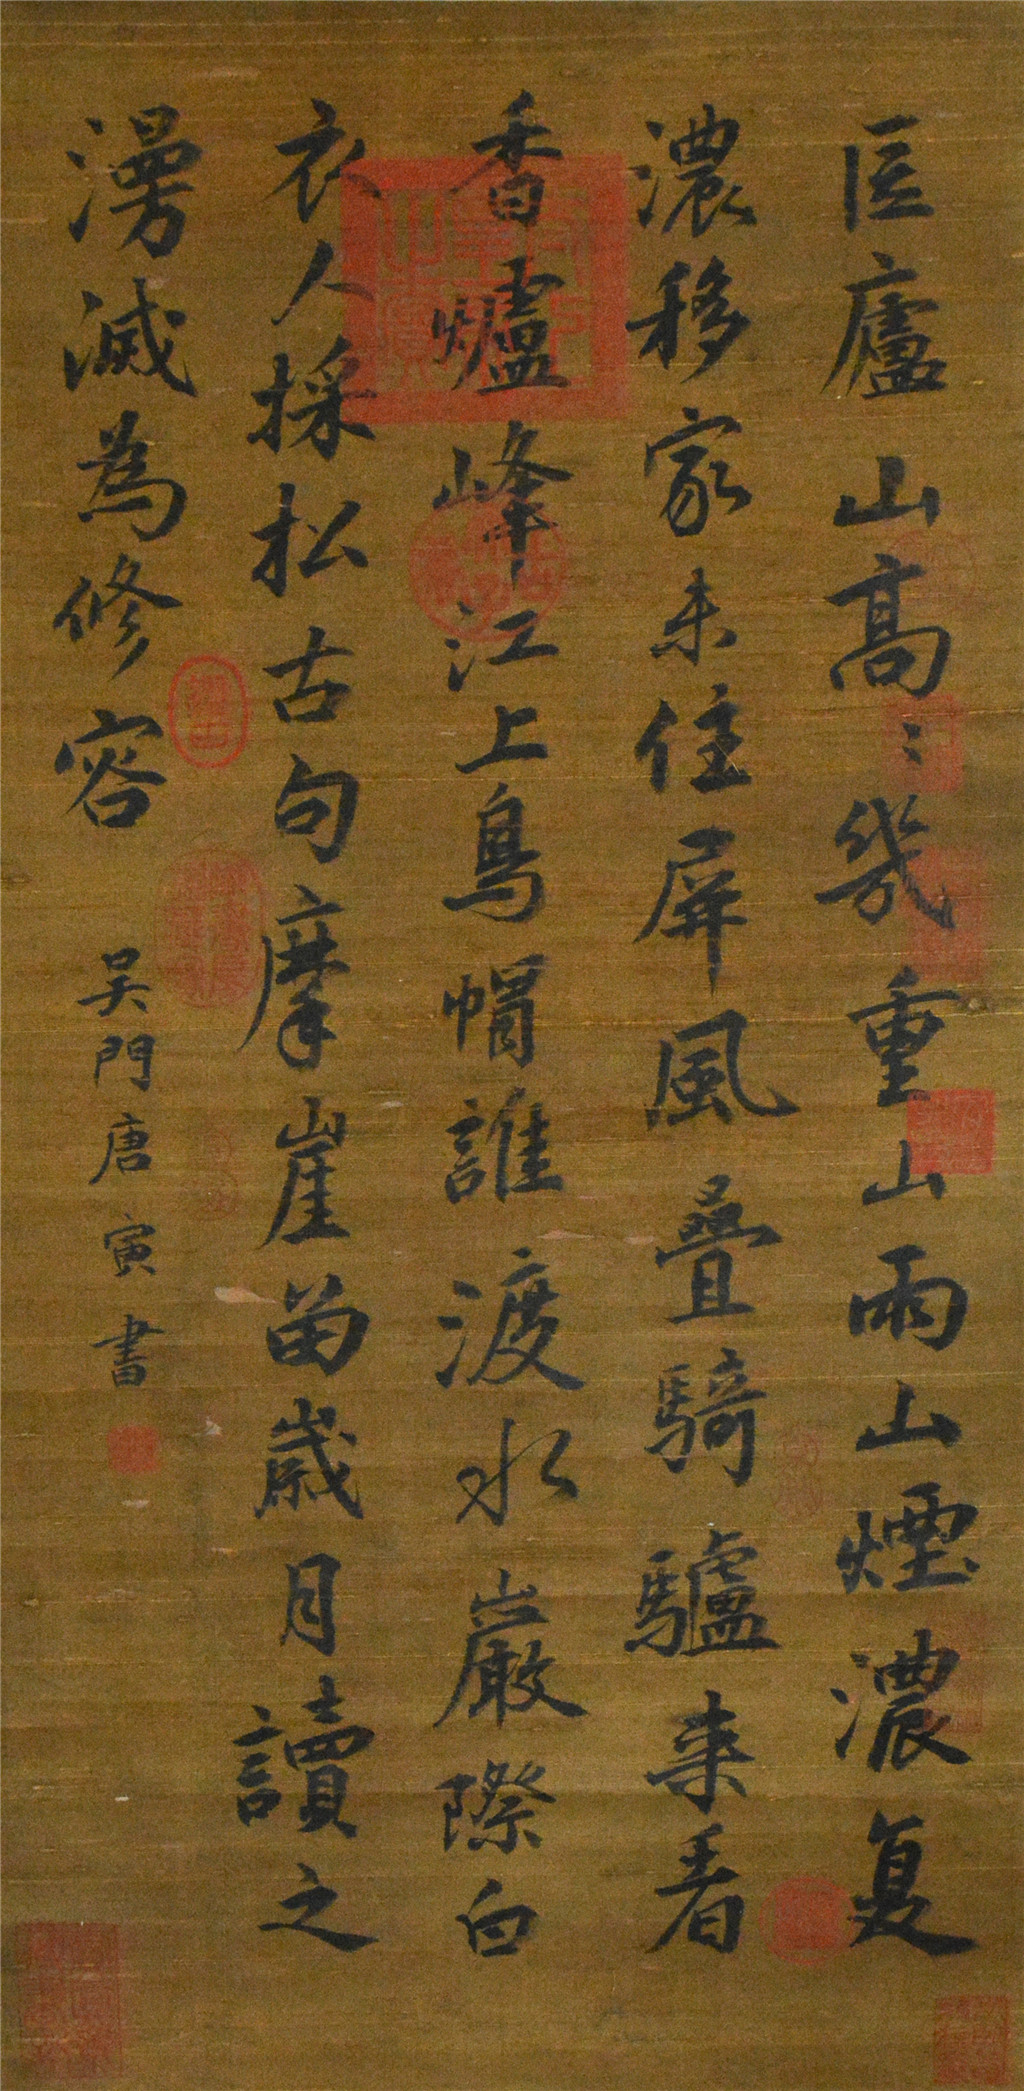 匡廬山高〻幾重山雨山煙濃复
濃移家未住屏風疊騎驢来看
香爐峰江上烏帽誰渡水巖際白
衣人採松古句摩崖留歲月讀之
漫滅為修容
吳門唐寅書